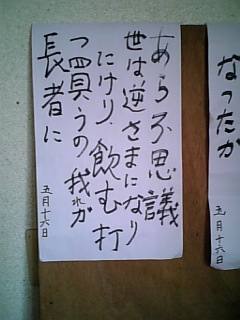 あら不思議
世は逆さまになり
にけり、飲む打
つ買うの我れが
長者に
五月十六日
なったか
五月十六日